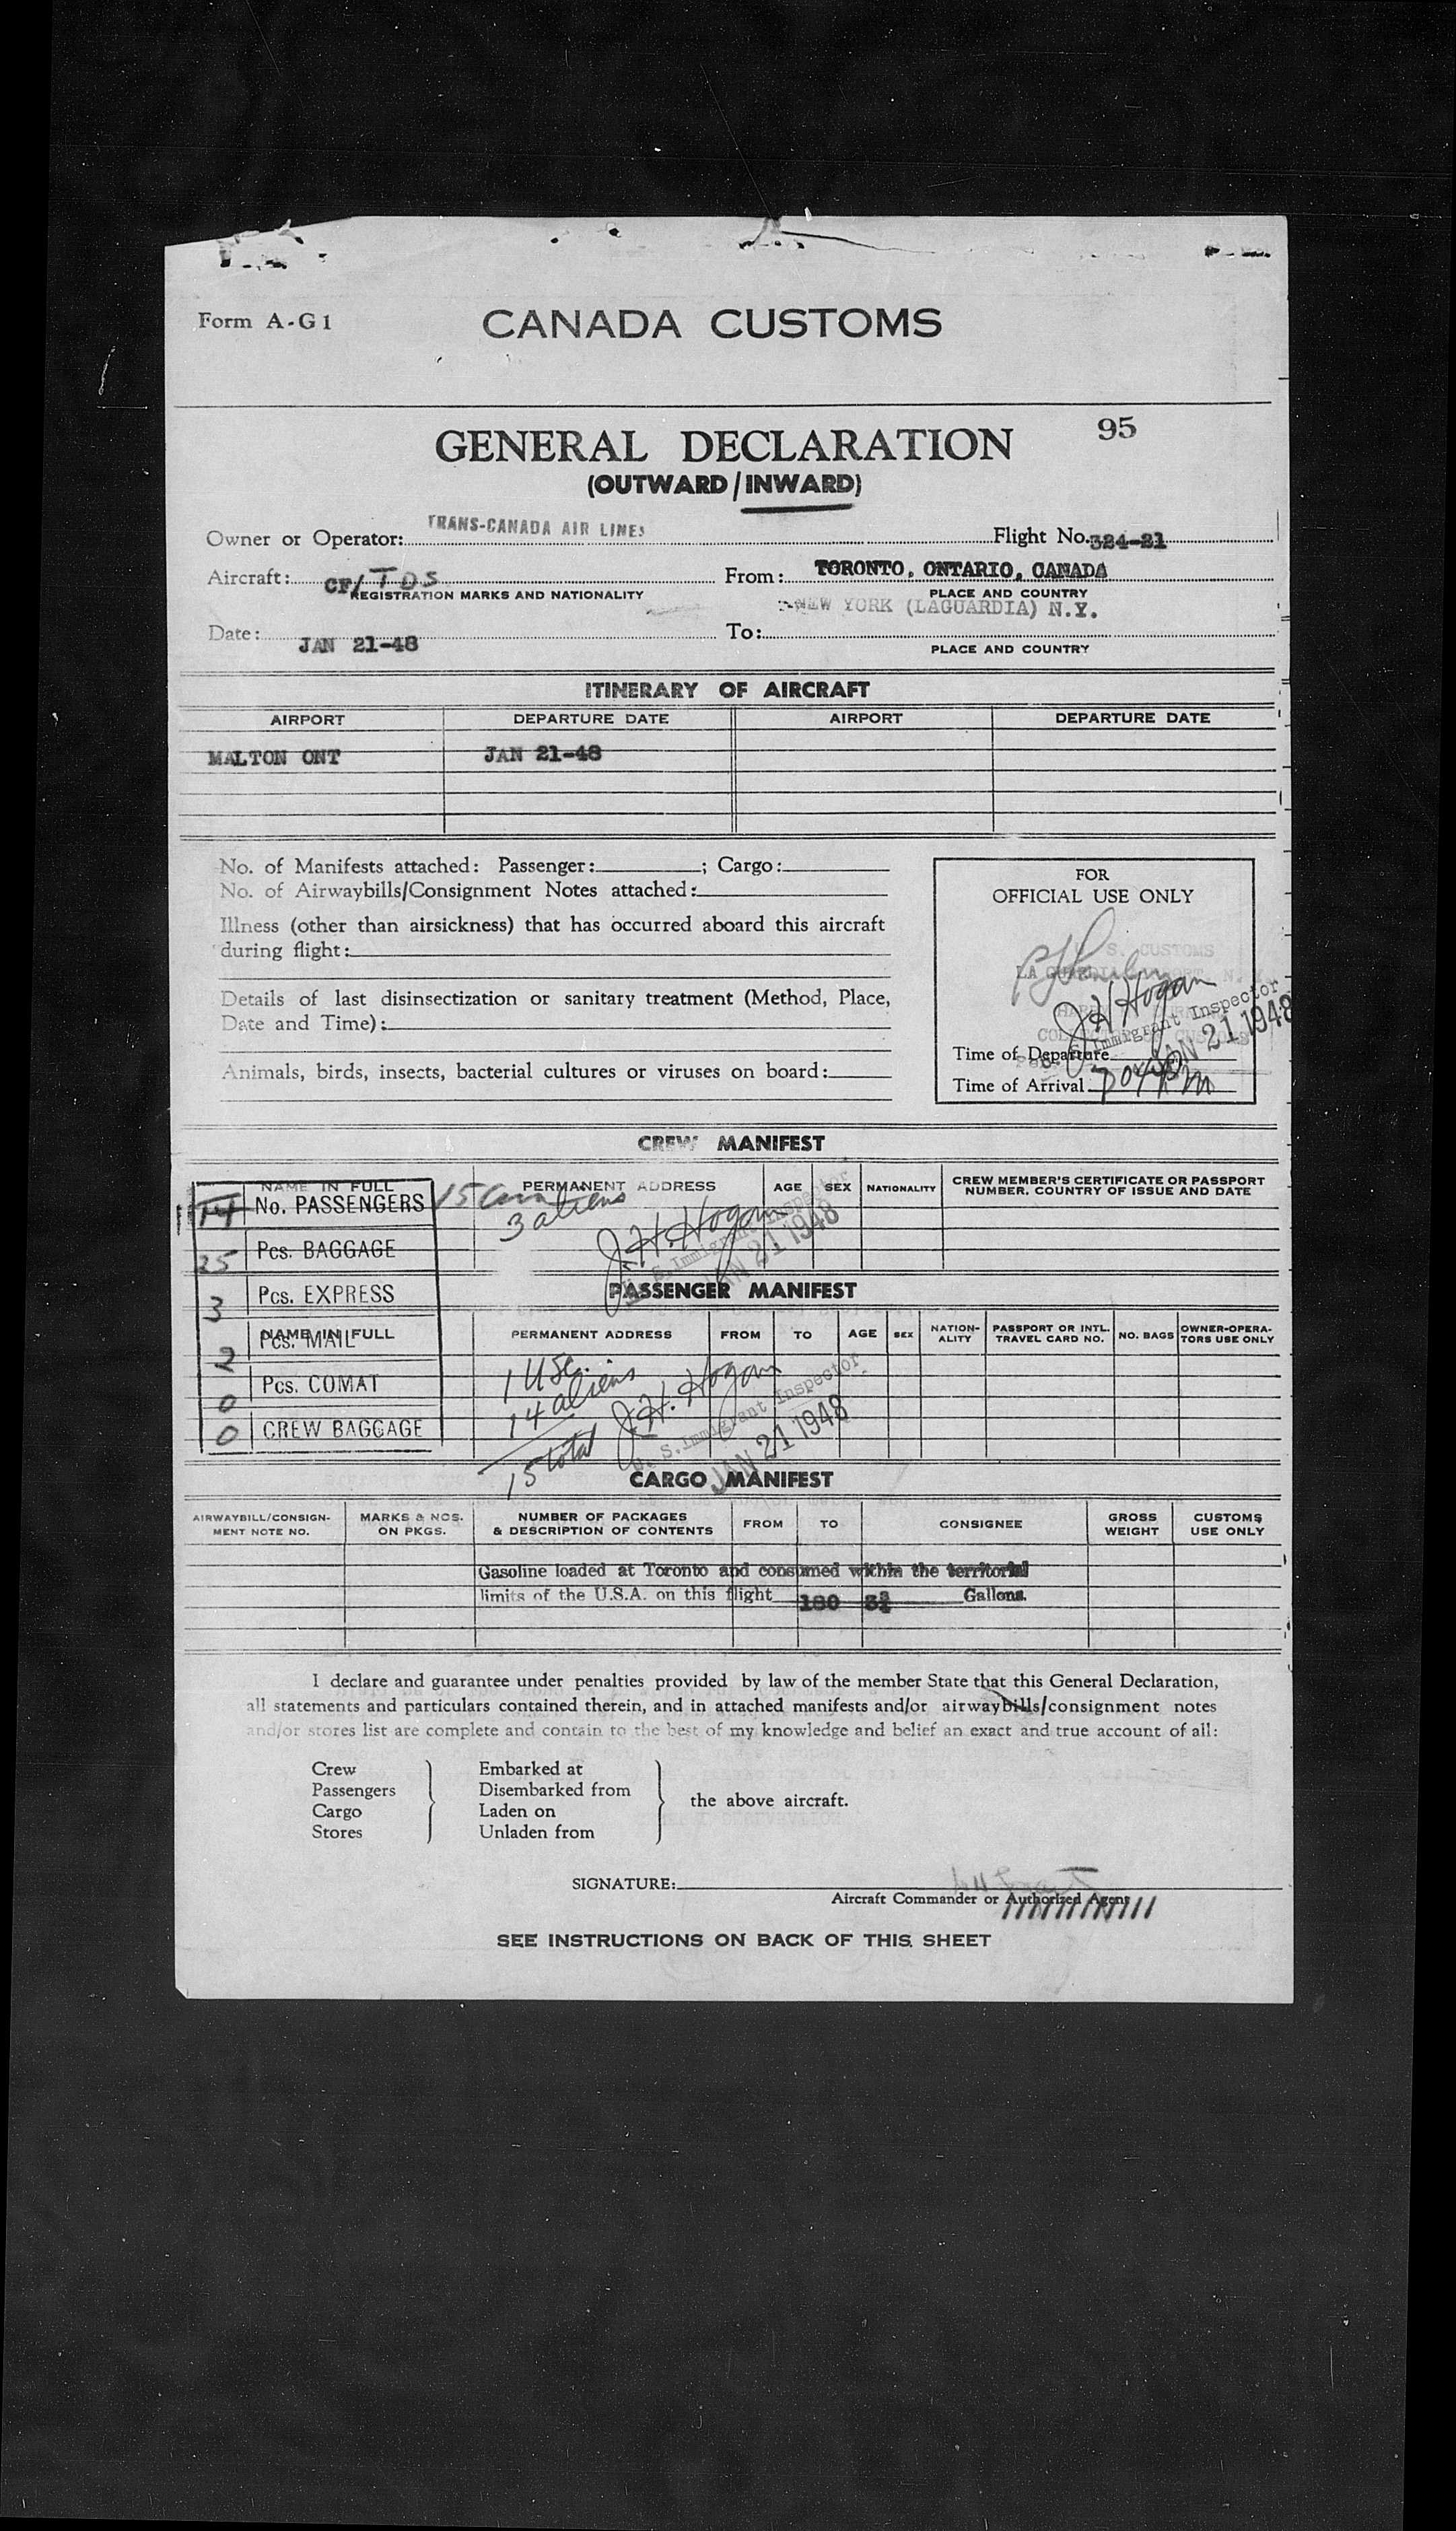 Form A-G1
CANADA CUSTOMS
GENERAL DECLARATION
95
(OUTWARD/INWARD)
Owner or Operator: TRANS-CANADA AIR LINES Flight No. 324-21
Aircraft: CF/TDS From: TORONTO, ONTARIO, CANADA
REGISTRATION MARKS AND NATIONALITY PLACE AND COUNTRY
NEW YORK (LAGUARDIA) N.Y.
Date: JAN 21-48 To:
PLACE AND COUNTRY
ITINERARY OF AIRCRAFT
AIRPORT DEPARTURE DATE AIRPORT DEPARTURE DATE
MALTON ONT JAN 21-48
No. of Manifests attached: Passenger: ; Cargo:
No. of Airwaybills/Consignment Notes attached:
Illness (other than airsickness) that has occurred aboard this aircraft
during flight:
Details of last disinsectization or sanitary treatment (Method, Place,
Date and Time):
Animals, birds, insects, bacterial cultures or viruses on board:
FOR
OFFICIAL USE ONLY
U. S. CUSTOMS
J H Hogan
Immigrant Inspector
JAN 21 1948
Time of Departure
Time of Arrival
CREW MANIFEST
NAME IN FULL PERMANENT ADDRESS AGE SEX NATIONALITY CREW MEMBER'S CERTIFICATE OR PASSPORT
NUMBER, COUNTRY OF ISSUE AND DATE
14 No. PASSENGERS
3 aliens
J. H. Hogan
U. S. Immigrant Inspector
JAN 21 1948
25 Pcs. BAGGAGE
3 Pcs. EXPRESS
PASSENGER MANIFEST
NAME IN FULL PERMANENT ADDRESS FROM TO AGE SEX NATION-
ALITY PASSPORT OR INTL.
TRAVEL CARD NO. NO. BAGS OWNER-OPERA-
TORS USE ONLY
2 Pcs. MAIL
0 Pcs. COMAT
0 CREW BAGGAGE
1 USC.
14 aliens
15 total
J. H. Hogan
U. S. Immigrant Inspector
JAN 21 1948
CARGO MANIFEST
AIRWAYBILL/CONSIGN-
MENT NOTE NO. MARKS & NOS.
ON PKGS. NUMBER OF PACKAGES
& DESCRIPTION OF CONTENTS FROM TO CONSIGNEE GROSS
WEIGHT CUSTOMS
USE ONLY
Gasoline loaded at Toronto and consumed within the territorial
limits of the U.S.A. on this flight 180 Gallons.
I declare and guarantee under penalties provided by law of the member State that this General Declaration,
all statements and particulars contained therein, and in attached manifests and/or airwaybills/consignment notes
and/or stores list are complete and contain to the best of my knowledge and belief an exact and true account of all:
Crew Embarked at
Passengers Disembarked from
Cargo Laden on
Stores Unladen from
the above aircraft.
SIGNATURE:
Aircraft Commander or Authorized Agent
SEE INSTRUCTIONS ON BACK OF THIS SHEET